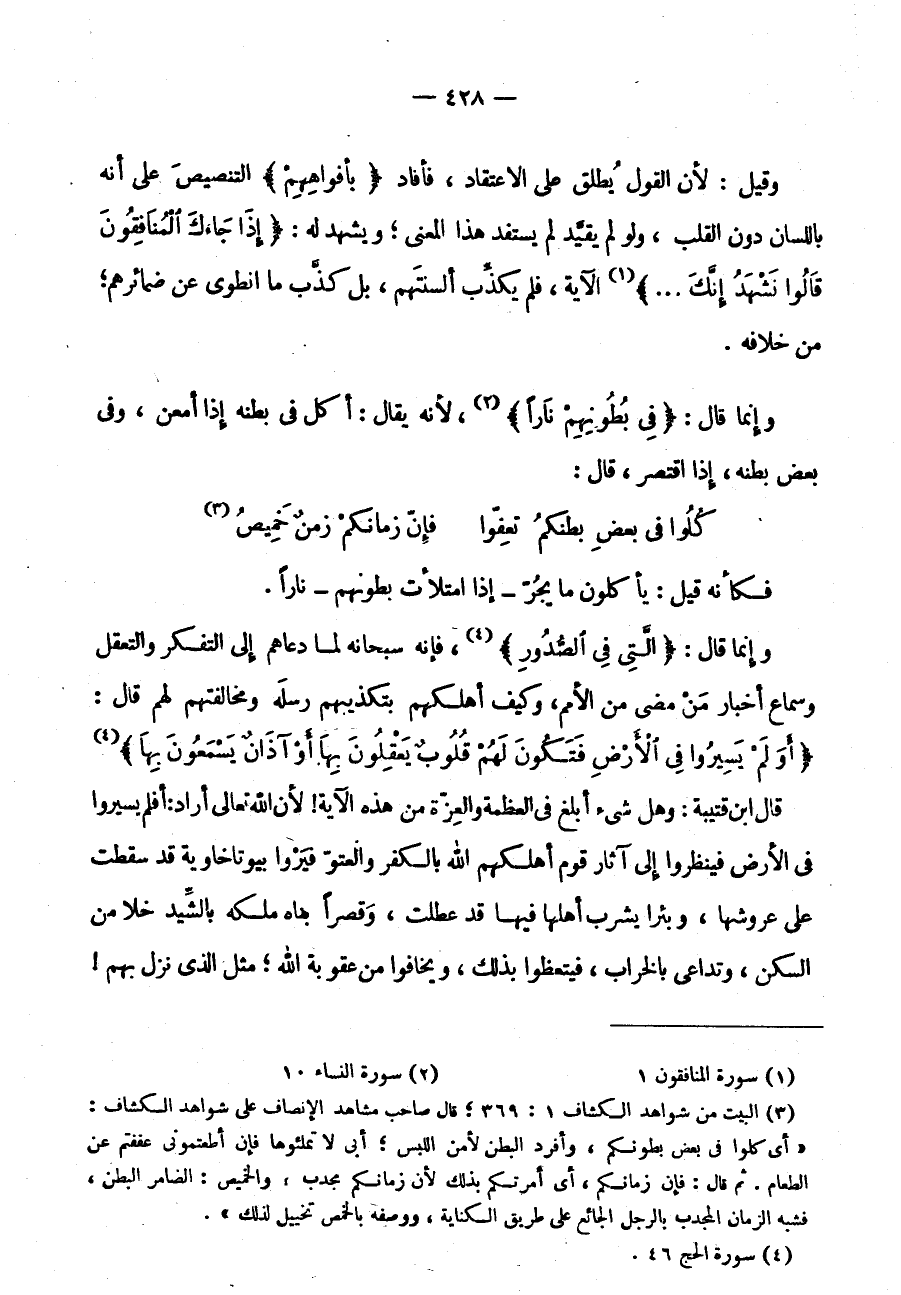 — ٤٢٨ —
وقيل : لأن القول يُطلق على الاعتقاد ، فأفاد ﴿ بأفواهِهِمْ ﴾ التنصيصَ على أنه
باللسان دون القلب ، ولو لم يقيَّد لم يستفد هذا المعنى ؛ ويشهد له : ﴿ إِذَا جَاءَكَ ٱلْمُنَافِقُونَ
قَالُوا نَشْهَدُ إِنَّكَ ... ﴾(١) الآية ، فلم يكذِّب ألسنتَهم ، بل كذَّب ما انطوى عن ضمائرهم؛
من خلافه .
وإنما قال : ﴿ فِي بُطُونِهِمْ نَاراً ﴾(٢) ، لأنه يقال : أكل فى بطنه إذا أمعن ، وفى
بعض بطنه ، إذا اقتصر ، قال :
كُلُوا فى بعضِ بطنكمُ تعفّوا فإنّ زمانكمْ زمنٌ خَمِيصُ(٣)
فكأنه قيل : يأكلون ما يجُرّ ــ إذا امتلأت بطونهم ــ ناراً .
وإنما قال : ﴿ الَّتِي فِي ٱلصُّدُورِ ﴾(٤) ، فإنه سبحانه لما دعاهم إلى التفكر والتعقل
وسماع أخبار مَنْ مضى من الأمم، وكيف أهلكهم بتكذيبهم رسلَه ومخالفتهم لهم قال :
﴿ أَوَ لَمْ يَسِيرُوا فِي ٱلْأَرْضِ فَتَكُونَ لَهُمْ قُلُوبٌ يَعْقِلُونَ بِهَا أَوْ آذَانٌ يَسْمَعُونَ بِهَا ﴾(٤)
قال ابن قتيبة : وهل شىء أبلغ فى العظمة والعِزّة من هذه الآية! لأن الله تعالى أراد: أفلم يسيروا
فى الأرض فينظروا إلى آثار قوم أهلكهم الله بالكفر والعتوّ فيَرْوا بيوتا خاوية قد سقطت
على عروشها ، وبئرا يشرب أهلها فيها قد عطلت ، وَقصراً بناه ملكه بالشِّيد خلا من
السكن ، وتداعى بالخراب ، فيتعظوا بذلك ، ويخافوا من عقوبة الله ؛ مثل الذى نزل بهم !
(١) سورة المنافقون ١ (٢) سورة النساء ١٠
(٣) البيت من شواهد الكشاف ١ : ٣٦٩ ؛ قال صاحب مشاهد الإنصاف على شواهد الكشاف :
« أى كلوا فى بعض بطونكم ، وأفرد البطن لأمن اللبس ؛ أبى لا تملئوها فإن أطعتمونى عففتم عن
الطعام . ثم قال : فإن زمانكم ، أى أمرتكم بذلك لأن زمانكم مجدب ، والخميص : الضامر البطن ،
فشبه الزمان المجدب بالرجل الجائع على طريق الكناية ، ووصفه بالخمص تخييل لذلك » .
(٤) سورة الحج ٤٦ .